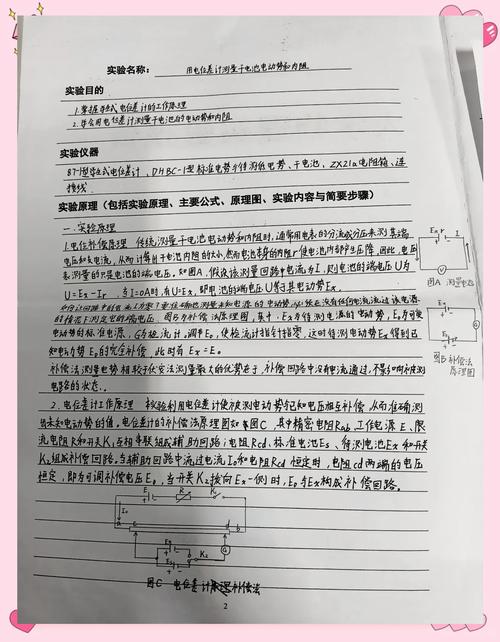 实验名称： 用电位差计测量干电池电动势和内阻
实验目的
1.掌握导线式电位差计的工作原理
2.学会用电位差计测量干电池的电动势和内阻
实验仪器
87-1型导线式电位差计、DHBC-1型标准电势与待测低电势、干电池、ZX21a电阻箱、连
接线
实验原理（包括实验原理、主要公式、原理图、实验内容与简要步骤）
一.实验原理
1.电位补偿原理 传统测量干电池电动势和内阻时，通常用电表的分流或分压来测其端
电压和支电流，从而计算出干电池内阻的大小，然而电池本身的内阻r使电池内部产生压降，因此，电压
表测量的只是电池的端电压，如图A，假设该测量回路中电流为I，则电池的端电压U为
U=Ex-Ir 当I=0A时，有U=Ex，即电池的端电压U等于其电动势Ex。
的情况下测定它的端电压 图B为补偿法原理图，其中：Ex为待测电源的电动势，E₀为可变
电动势的标准电源，G为检流计，调节E₀，使检流计指针指零，这时待测电动势Ex得到已
知电动势E₀的完全补偿，此时有Ex=E₀。
补偿法测量电势相较于伏安法测量最大的优势在于，补偿回路中没有电流通过，不影响被测
电路者的状态。
2.电位差计工作原理 本实验利用电位差计使被测电动势与已知电压相互补偿，从而准确测
出未知电动势的值，电位差计的补偿法原理图如图C，其中精密电阻Rab、工作电源E、限
流电阻R和开关K₁互相串联组成辅助回路；电阻Rcd、标准电池Es、待测电池Ex和开关
K₂组成补偿回路。当辅助回路中流过电流I₀和电阻Rcd恒定时，电阻cd两端的电压
恒定，即为可调补偿电压E₀，当开关K₂拨向Ex一侧时，E₀与Ex构成补偿回路。
Ex r I
图A 测量电路
图B 补偿法
原理图
E R K₁
I₀
a c d b
Ex K₂ G
Es
图C 电位差计补偿法
2